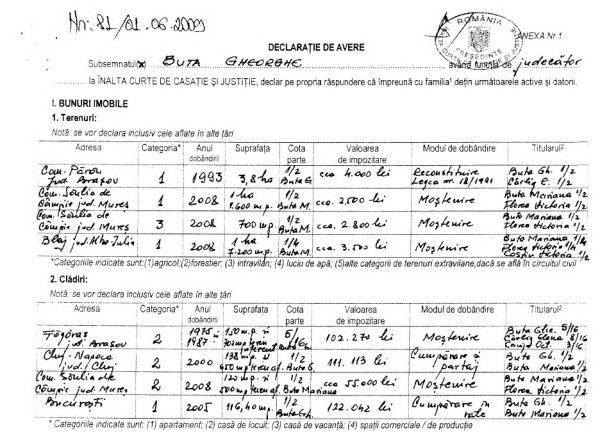 Nr. 81/01.06.2009
ROMÂNIA
PREȘEDINTE
ANEXA Nr.1
DECLARAȚIE DE AVERE
Subsemnatul(a) BUTA GHEORGHE având funcția de judecător
la ÎNALTA CURTE DE CASAȚIE ȘI JUSTIȚIE, declar pe propria răspundere că împreună cu familia¹ dețin următoarele active și datorii.
I. BUNURI IMOBILE
1. Terenuri:
Notă: se vor declara inclusiv cele aflate în alte țări
Adresa Categoria* Anul dobândirii Suprafața Cota parte Valoarea de impozitare Modul de dobândire Titularul²
Com. Părău jud. Brașov 1 1993 3,8 ha 1/2 Buta G. cca 4.000 lei Reconstituire Legea nr. 18/1991 Buta Gh. 1/2 E. 1/2
Com. de Câmpie jud. Mureș 1 2008 1 ha 1.600 m.p. 1/2 Buta M. cca 2.500 lei Moștenire Buta Mariana 1/2 Florea Victoria 1/2
Com. de Câmpie jud. Mureș 3 2008 700 mp 1/2 Buta M. cca 2.800 lei Moștenire Buta Mariana 1/2 Florea Victoria 1/2
Blaj jud. Alba Iulia 1 2008 1 ha 7.200 m.p. 1/4 Buta M. cca 3.500 lei Moștenire Buta Mariana 1/4 Florea Victoria
*Categoriile indicate sunt:(1)agricol;(2)forestier; (3) intravilan; (4) luciu de apă; (5)alte categorii de terenuri extravilane,dacă se află în circuitul civil
2. Clădiri:
Notă: se vor declara inclusiv cele aflate în alte țări
Adresa Categoria* Anul dobândirii Suprafața Cota parte Valoarea de impozitare Modul de dobândire Titularul²
Făgăraș jud. Brașov 2 1975 și 1987 150 m.p. și 5/16 102.270 lei Moștenire Buta Ghe. 5/16 Elena 8/16 3/16
Cluj-Napoca jud. Cluj 2 2000 138 m.p. 1/2 111.113 lei Cumpărare și partaj Buta Gh. 1/2 Buta M. 1/2
Com. de Câmpie jud. Mureș 2 2008 120 m.p. și 1/2 cca 55.000 lei Moștenire Buta Mariana 1/2 Florea Victoria 1/2
București 1 2005 116,40 mp. 1/2 Buta Gh. 122.042 lei Cumpărare în rate Buta Gh. 1/2 Buta Mariana 1/2
* Categoriile indicate sunt: (1) apartament; (2) casă de locuit; (3) casă de vacanță; (4) spații comerciale / de producție